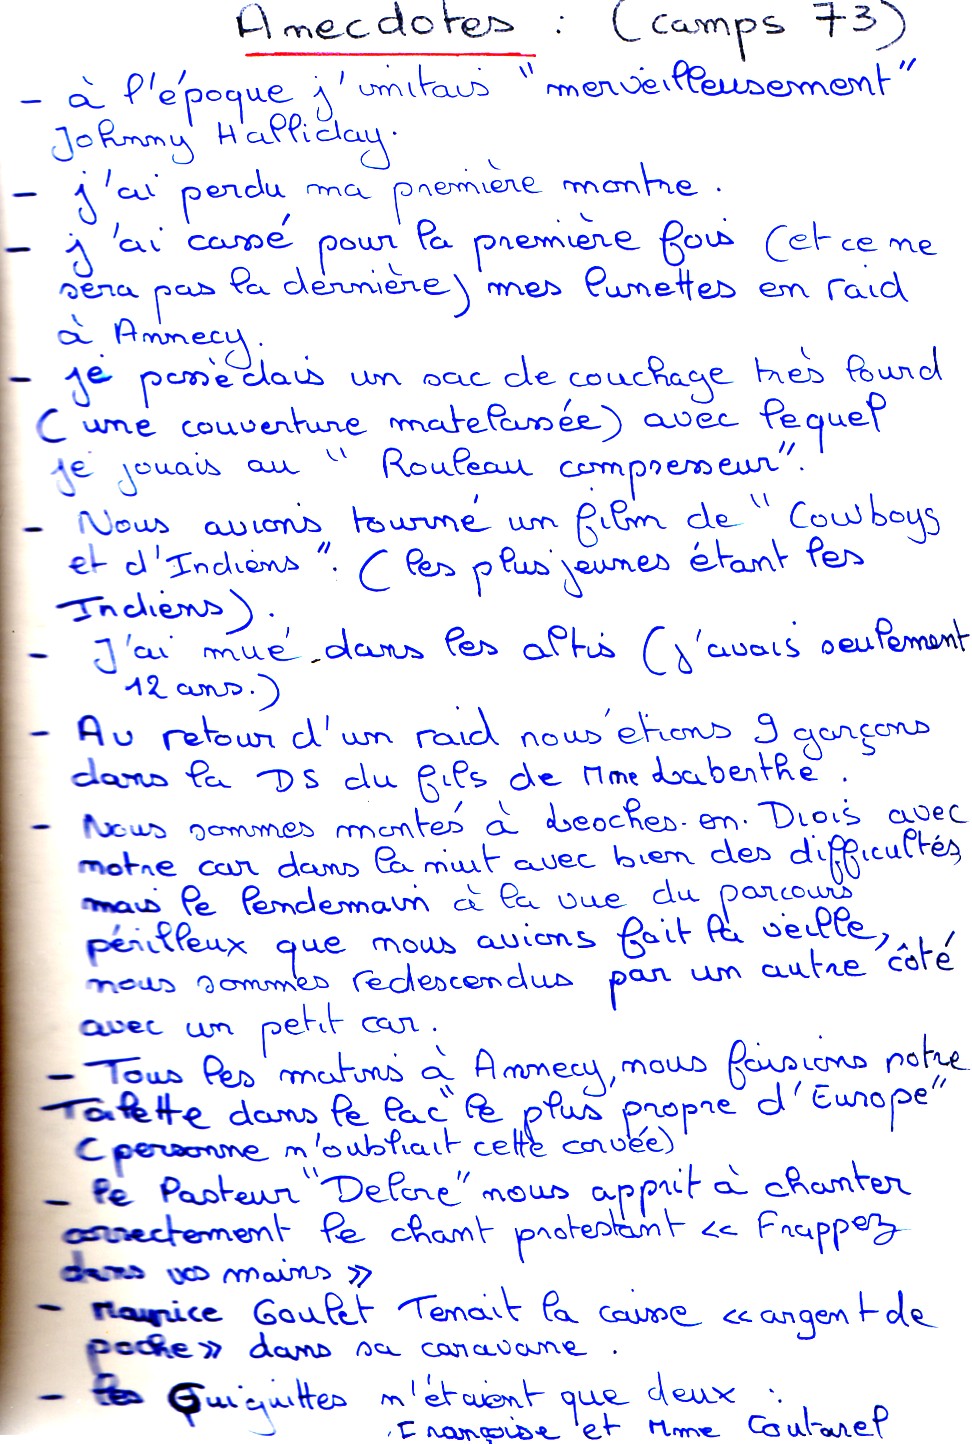 Anecdotes : (camps 73)
- à l'époque j'imitais "merveilleusement"
Johnny Halliday.
- j'ai perdu ma première montre.
- j'ai cassé pour la première fois (et ce ne
sera pas la dernière) mes lunettes en raid
à Annecy.
- je possèdais un sac de couchage très lourd
(une couverture matelassée) avec lequel
je jouais au "Rouleau compresseur".
- Nous avions tourné un film de "Cowboys
et d'Indiens". (les plus jeunes étant les
Indiens).
- J'ai mué dans les altis (j'avais seulement
12 ans.)
- Au retour d'un raid nous étions 9 garçons
dans la DS du fils de Mme Laberthe.
- Nous sommes montés à Leoches-en-Diois avec
notre car dans la nuit avec bien des difficultés,
mais le lendemain à la vue du parcours
périlleux que nous avions fait la veille,
nous sommes redescendus par un autre côté
avec un petit car.
- Tous les matins à Annecy, nous faisions notre
Toilette dans le lac "le plus propre d'Europe"
(personne n'oubliait cette corvée)
- le Pasteur "Delore" nous apprit à chanter
correctement le chant protestant << Frappez
dans vos mains >>
- Maurice Goulet Tenait la caisse << argent de
poche >> dans sa caravane.
- les Guiguittes n'étaient que deux :
Françoise et Mme Coutarel